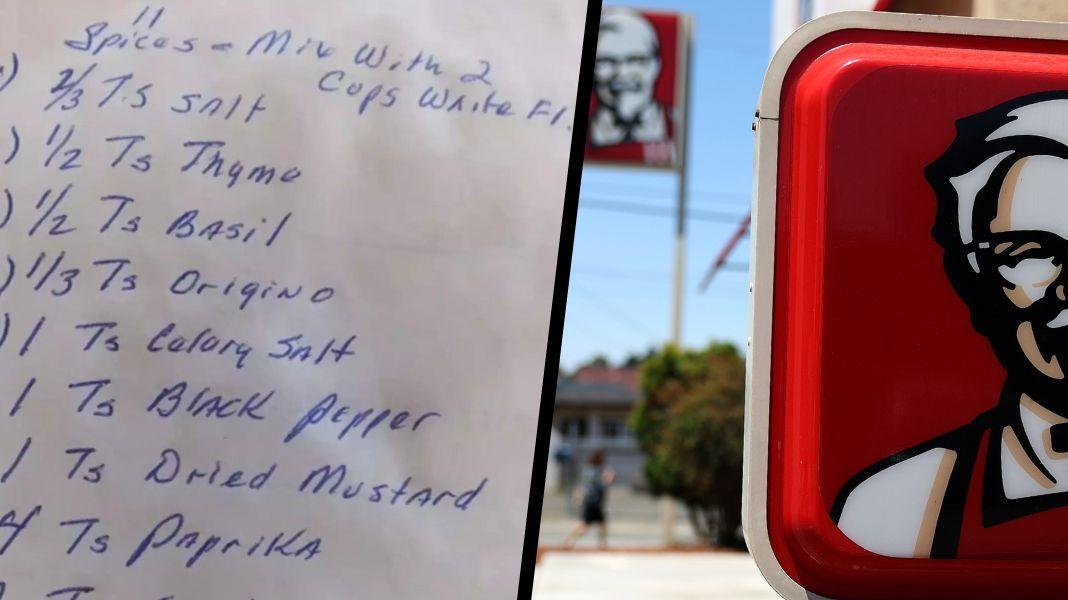 11
Spices - Mix With 2
Cups White Fl.
) 2/3 Ts Salt
) 1/2 Ts Thyme
) 1/2 Ts Basil
) 1/3 Ts Origino
) 1 Ts Celary Salt
1 Ts Black Pepper
1 Ts Dried Mustard
4 Ts Paprika
Ts